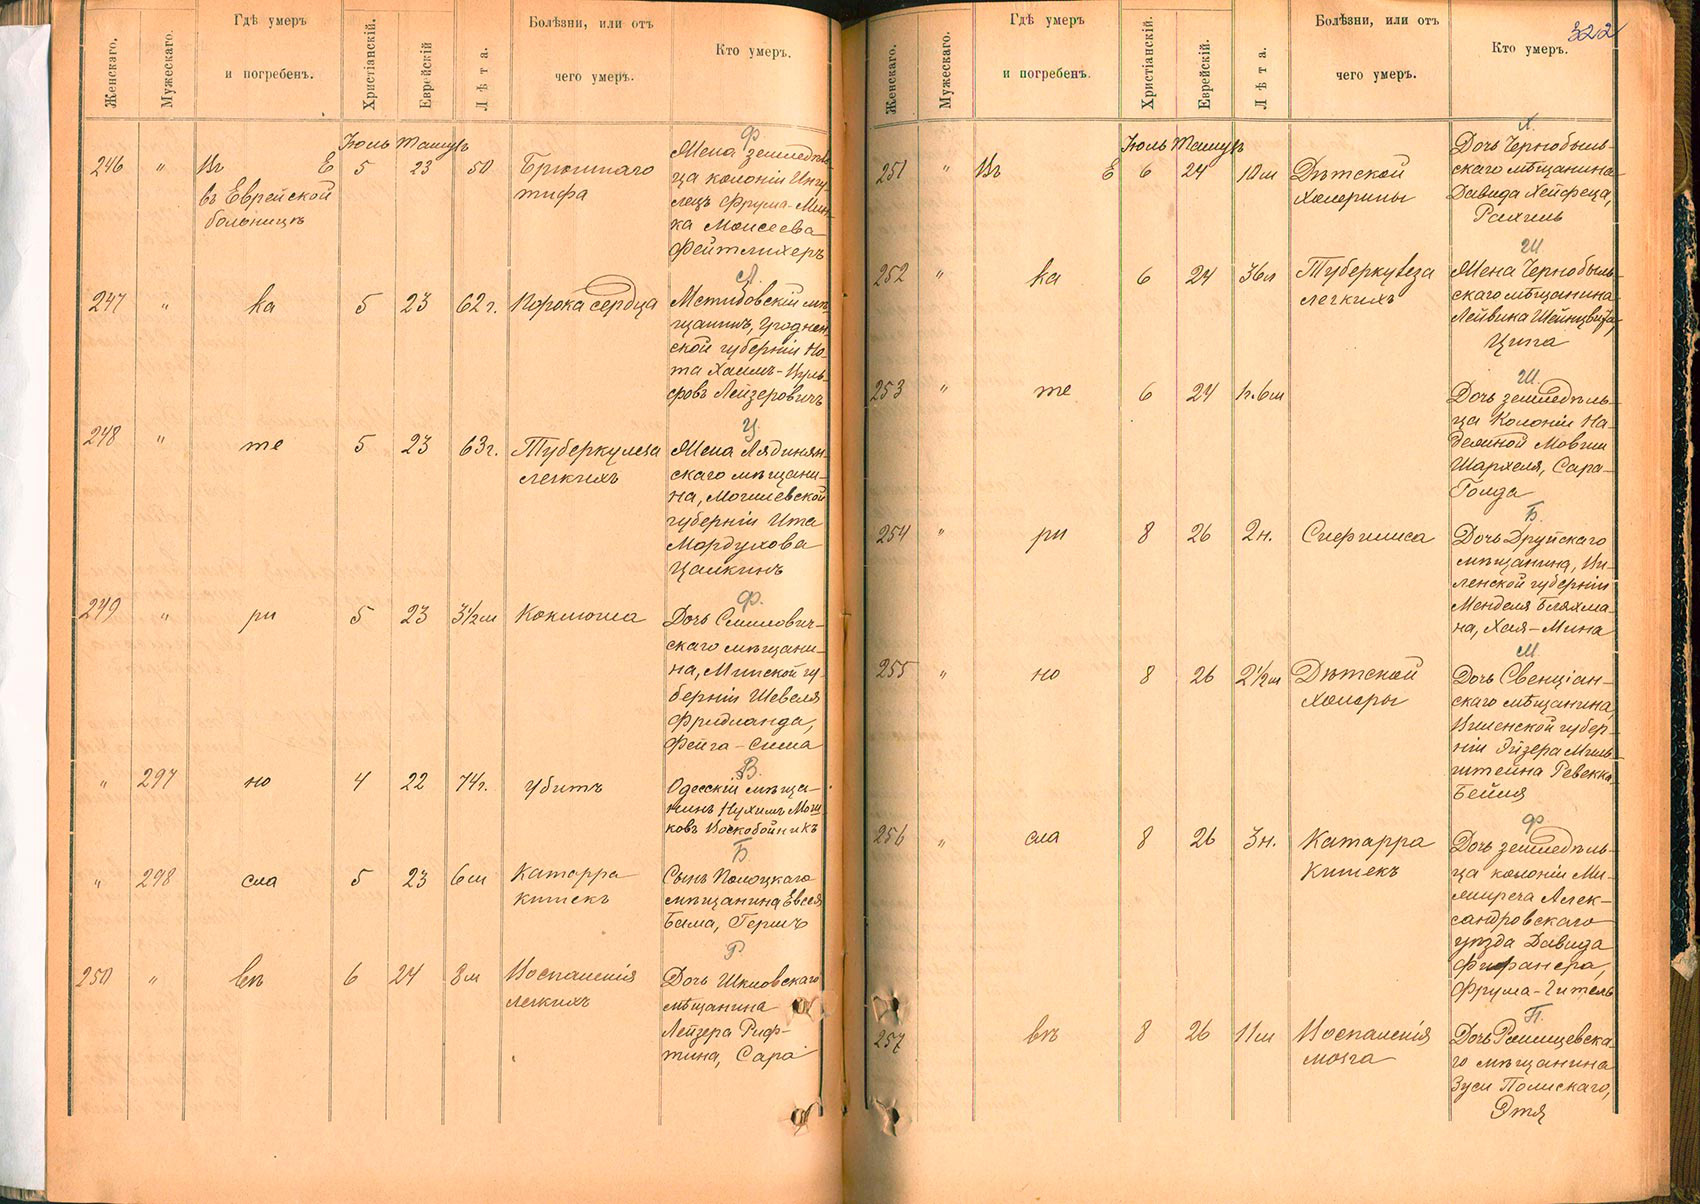 322
Женскаго.
Мужескаго.
Гдѣ умеръ
и погребенъ.
Христіанскій.
Еврейскій
Лѣта.
Болѣзни, или отъ
чего умеръ.
Кто умеръ.
Іюль Тамузъ
246 " Въ Е 5 23 50 Брюшнаго
въ Еврейской тифа
больницѣ
Ф
Жена земледѣль-
ца колоніи Ингу-
лецъ Фрума-Мин-
ка Моисеева
Фейтлихеръ
247 " ка 5 23 62 г. Порока сердца
Л
Мстибовскій мѣ-
щанинъ, Гроднен
ской губерніи Но-
та Хаимъ-Вуль-
фовъ Лейзеровичъ
248 " те 5 23 63 г. Туберкулеза
легкихъ
Ц
Жена Лядинян-
скаго мѣщани-
на, Могилевской
губерніи Ита
Мордухова
Цалкинъ
249 " ри 5 23 3½ м Коклюша
Ф.
Дочь Смилович-
скаго мѣщани-
на, Минской гу-
берніи Шевеля
Фридланда,
Фейга-Сима
" 297 но 4 22 74 г. Убитъ
В.
Одесскій мѣща-
нинъ Нухимъ Мош-
ковъ Воскобойникъ
" 298 сла 5 23 6 м Катарра
кишекъ
Б
Сынъ Полоцкаго
мѣщанина Евсея
Бама, Гершъ
250 " вѣ 6 24 8 м Воспаленія
легкихъ
Р
Дочь Шкловскаго
мѣщанина
Лейзера Риф-
тина, Сара
Женскаго.
Мужескаго.
Гдѣ умеръ
и погребенъ.
Христіанскій.
Еврейскій.
Лѣта.
Болѣзни, или отъ
чего умеръ.
Кто умеръ.
Іюль Тамузъ
251 " Въ Е 6 24 10 м Дѣтской
холерины
Х.
Дочь Чернобыль-
скаго мѣщанина
Давида Хейфеца,
Рахиль
252 " ка 6 24 36 л Туберкулеза
легкихъ
Ш
Жена Чернобыль
скаго мѣщанина
Лейвика Шейнцвита,
Ципа
253 " те 6 24 1 г. 6 м
Ш.
Дочь земледѣль-
ца Колоніи На-
дежной Мовши
Шархеля, Сара-
Голда
254 " ри 8 26 2 н. Сифилиса
Б.
Дочь Друйскаго
мѣщанина, Ви-
ленской губерніи
Менделя Бляхма-
на, Хая-Мина
255 " но 8 26 2½ м Дѣтской
холеры
М
Дочь Свенціан-
скаго мѣщанина,
Виленской губер-
ніи Эйзера Миль-
штейна Ревекка
Бейля
256 " сла 8 26 3 н. Катарра
кишекъ
Ф
Дочь земледѣль-
ца колоніи
Алек-
сандровскаго
уѣзда Давида
Фрума-Гитель
257 вѣ 8 26 11 м Воспаленія
мозга
П.
Дочь
го мѣщанина
Зуси Полискаго,
Этя